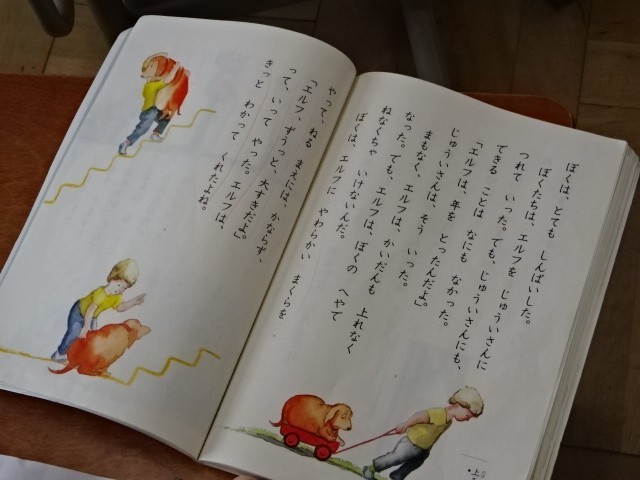 ぼくは、とても しんぱいした。
ぼくたちは、エルフを じゅういさんに
つれて いった。でも、じゅういさんにも、
できる ことは なにも なかった。
「エルフは、年を とったんだよ。」
じゅういさんは、そう いった。
まもなく、エルフは、かいだんも 上れなく
なった。でも、エルフは、ぼくの へやで
ねなくちゃ いけないんだ。
ぼくは、エルフに やわらかい まくらを
やって、ねる まえには、かならず、
「エルフ、ずうっと、大すきだよ。」
って、いって やった。エルフは、
きっと わかって くれたよね。